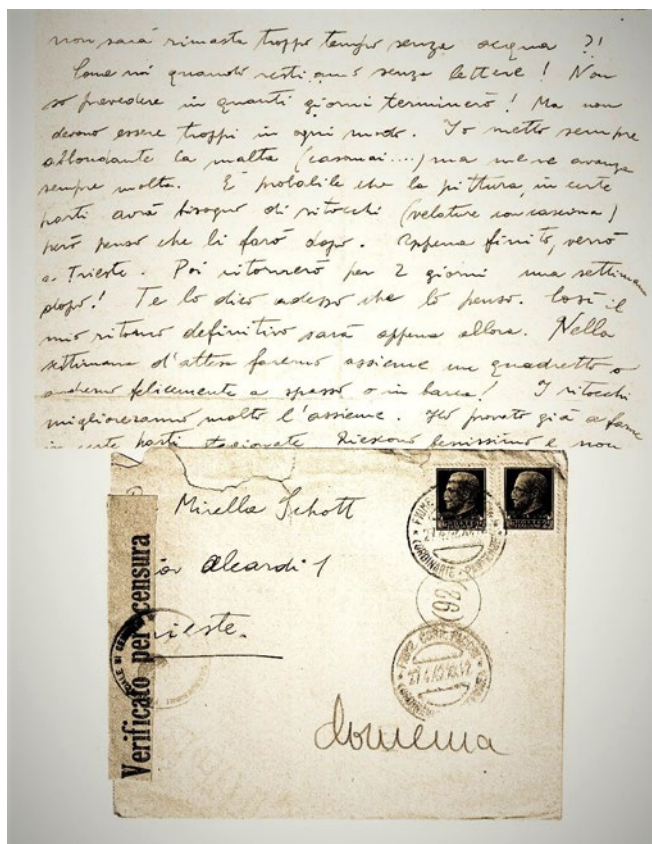 non sará rimasta troppo tempo senza acqua ?!
Come noi quando restiamo senza lettere ! Non
so prevedere in quanti giorni termineró ! Ma non
devono essere troppi in ogni modo. Io metto sempre
abbondante la malta (casomai....) ma me ne avanza
sempre molta. E' probabile che la pittura, in certe
parti avrá bisogno di ritocchi (velature con caseina)
peró penso che li faró dopo. Appena finito, verró
a Trieste. Poi ritorneró per 2 giorni una settimana
dopo! Te lo dico adesso che lo penso. Cosí il
mio ritorno definitivo sará appena allora. Nella
settimana d'attesa faremo assieme un quadretto o
andremo felicemente a spasso o in barca! I ritocchi
miglioreranno molto l'assieme. Ho provato giá a farne
in certe parti stagionate Riescono benissimo e non
Mirella Schott
Aleardi 1
Trieste.
Verificato per censura
FIUME
(98)
FIUME